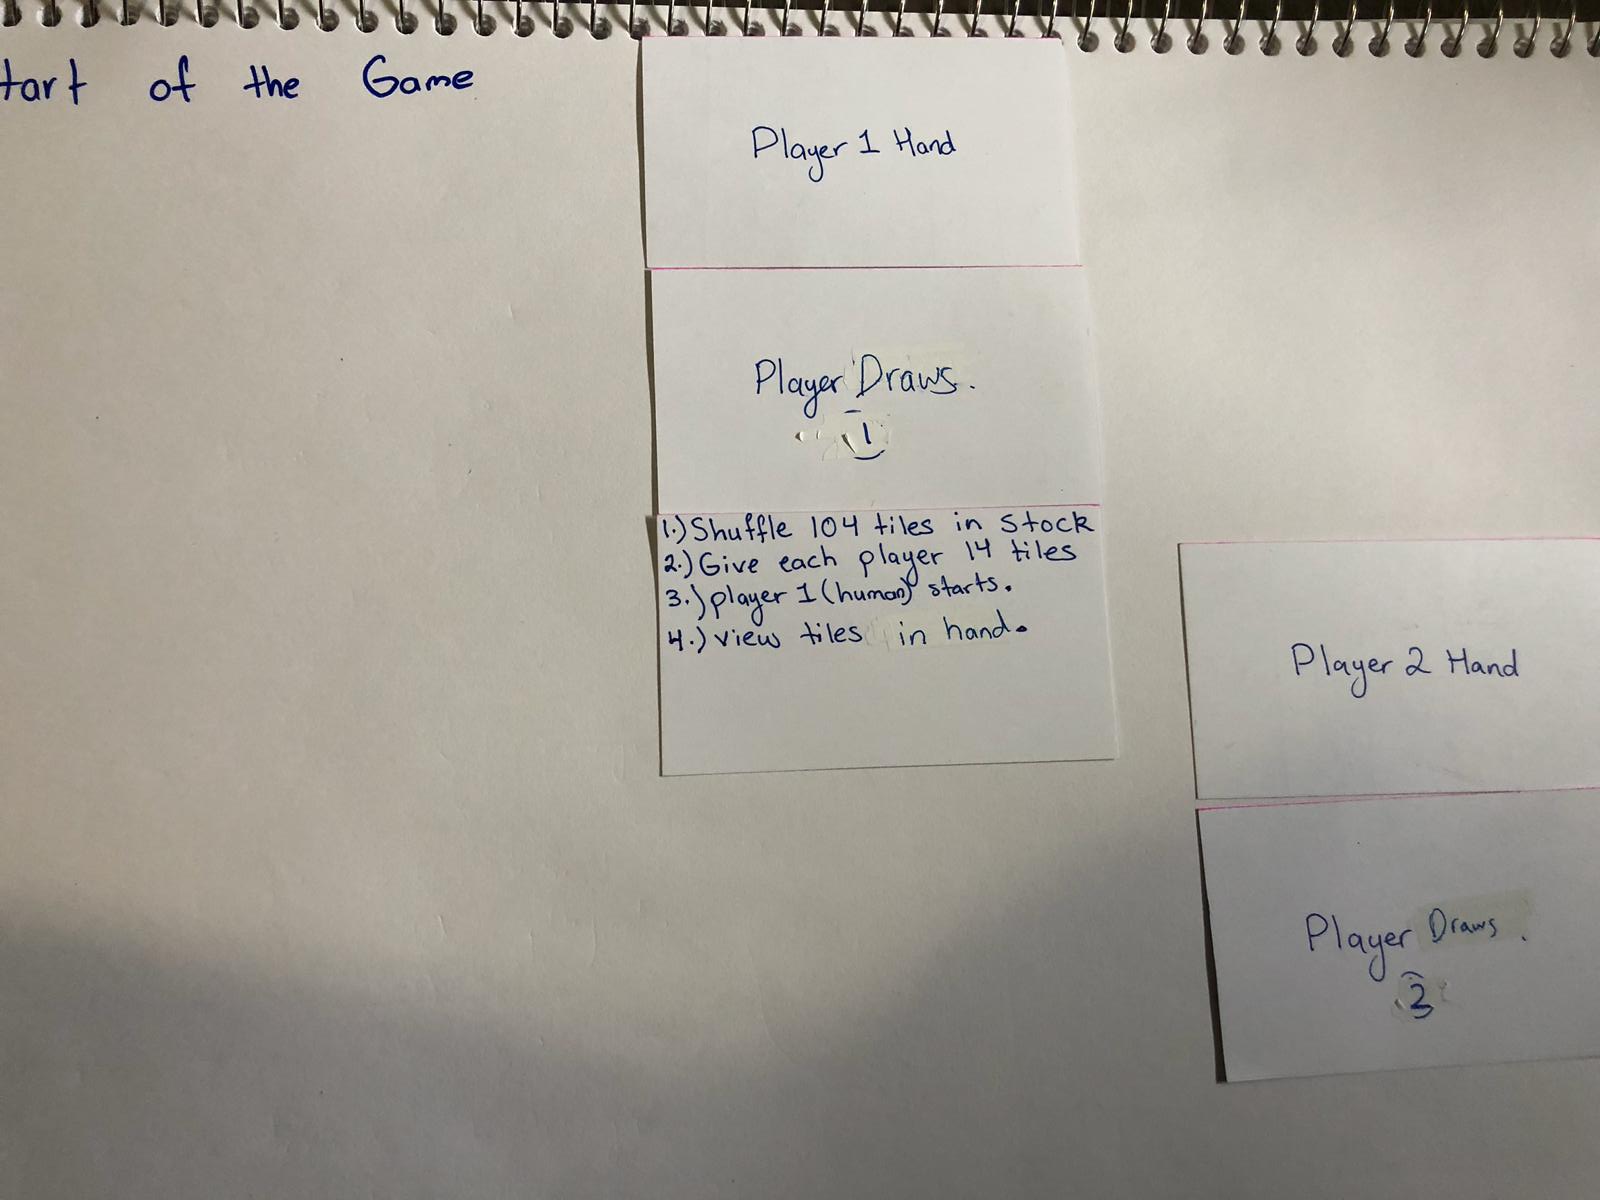 tart of the Game
Player 1 Hand
Player Draws.
1
1.) Shuffle 104 tiles in stock
2.) Give each player 14 tiles
3.) player 1 (human) starts.
4.) view tiles in hand.
Player 2 Hand
Player Draws.
2